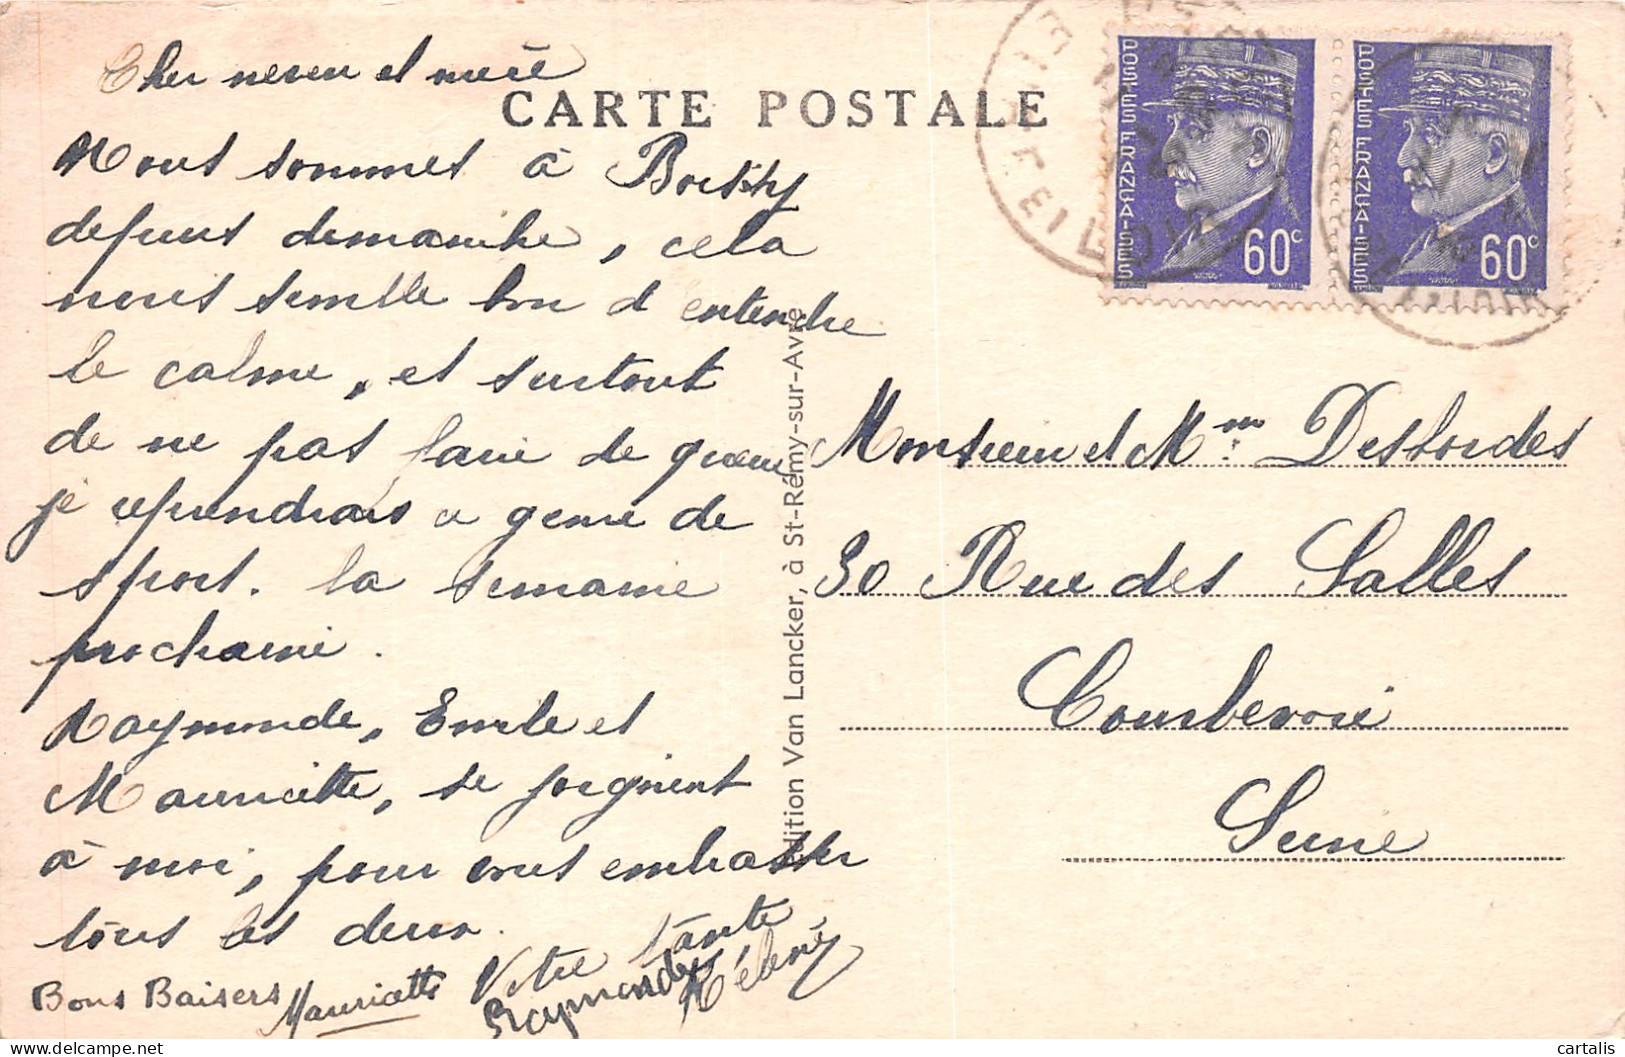 Cher neveu et nièce
CARTE POSTALE
Nous sommes à Boissy
depuis dimanche, cela
nous semble bon d'entendre
le calme, et surtout
de ne pas faire de queue
je reprendrais ce genre de
sport. la semaine
prochaine.
Raymonde, Emile et
Mauricette, se joignent
à moi, pour vous embrasser
tous les deux.
Votre tante
Hélène
Bons Baisers
Mauricette
Raymonde
Edition Van Lancker, à St-Rémy-sur-Avre
POSTES FRANÇAISES
60c
POSTES FRANÇAISES
60c
Monsieur et Mme Desbordes
30 Rue des Salles
Courbevoie
Seine
cartalis